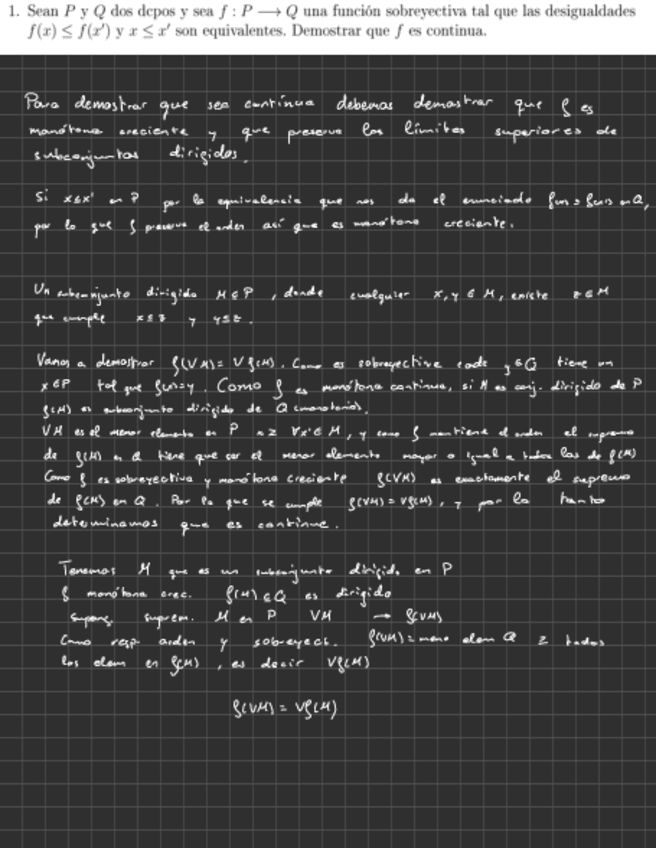 1. Sean P y Q dos dcpos y sea f : P ⟶ Q una función sobreyectiva tal que las desigualdades
f(x) ≤ f(x′) y x ≤ x′ son equivalentes. Demostrar que f es continua.
Para demostrar que sea continua debemos demostrar que f es
monótona creciente y que preserva los límites superiores de
subconjuntos dirigidos.
Si x≤x' en P por la equivalencia que nos da el enunciado en Q,
por lo que f preserva el orden así que es monótona creciente.
Un subconjunto dirigido M ⊆ P, donde cualquier x, y ∈ M, existe z ∈ M
que cumple x ≤ z y y ≤ z.
Vamos a demostrar f(VM) = V f(M). Como es sobreyectiva cada y ∈ Q tiene un
x ∈ P tal que f(x)=y. Como f es monótona continua, si M es conj. dirigido de P
f(M) es subconjunto dirigido de Q
VM es el menor elemento en P ≥ ∀x' ∈ M, y como f mantiene el orden el supremo
de f(M) en Q tiene que ser el menor elemento mayor o igual a todos los de f(M)
Como f es sobreyectiva y monótona creciente f(VM) es exactamente el supremo
de f(M) en Q. Por lo que se cumple f(VM) = Vf(M), y por lo tanto
determinamos que es continua.
Tenemos M que es un subconjunto dirigido en P
f monótona crec. f(M) ⊆ Q es dirigido
supong. suprem. M en P VM → f(VM)
Como resp. orden y sobreyect. f(VM) = meno elem Q ≥ todos
los elem en f(M), es decir Vf(M)
f(VM) = Vf(M)